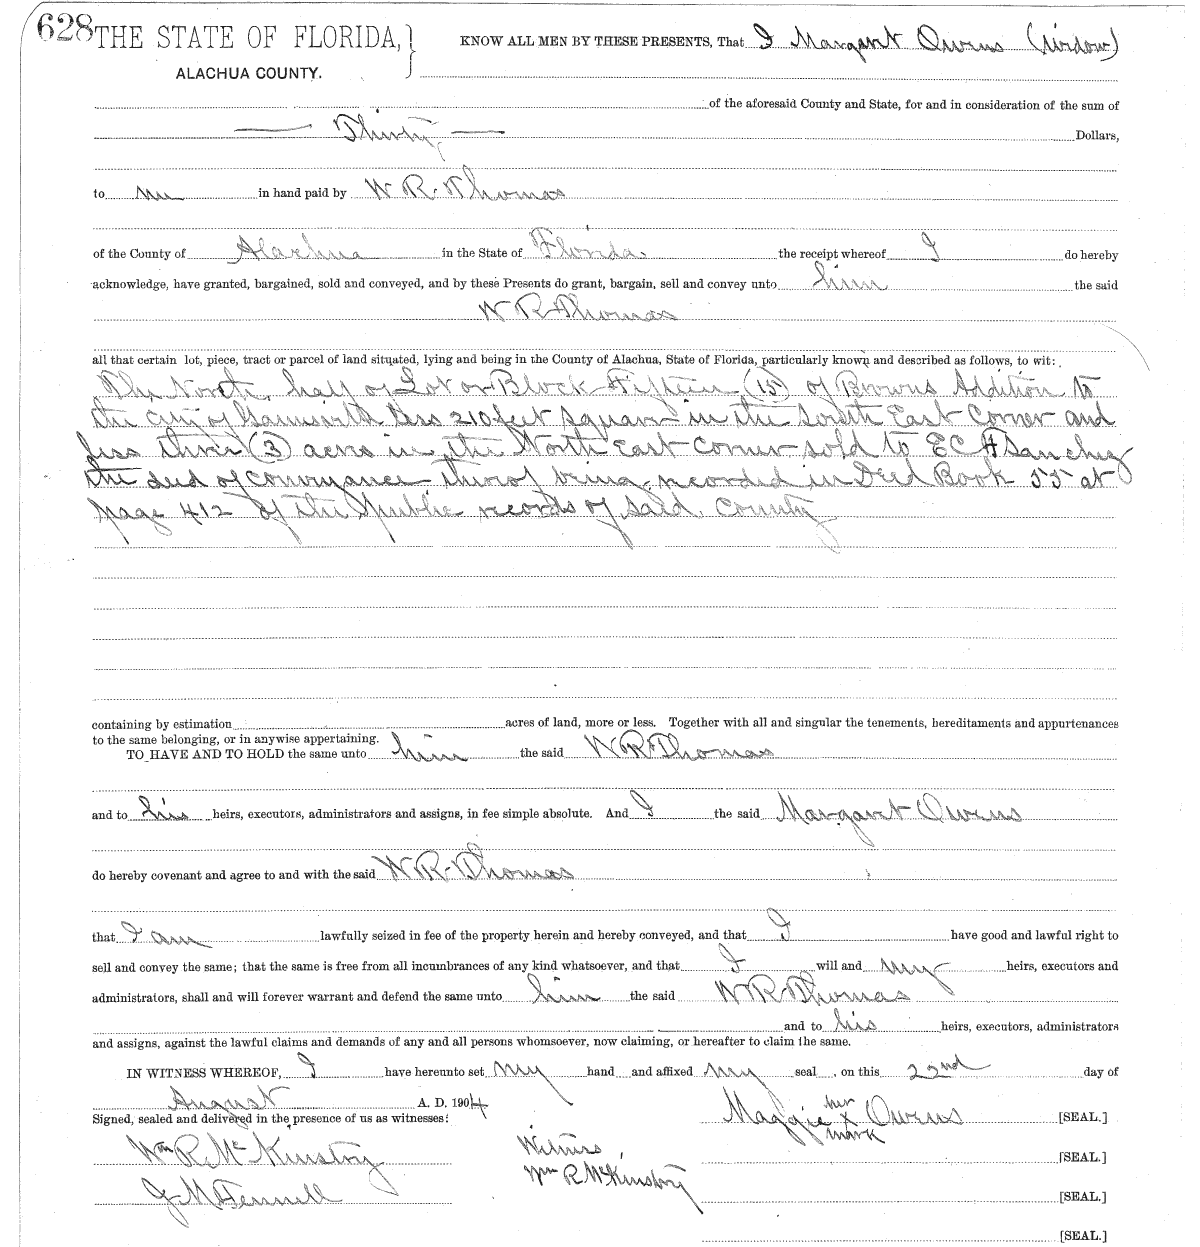 628 THE STATE OF FLORIDA, } KNOW ALL MEN BY THESE PRESENTS, That I Margaret Owens (Widow)
ALACHUA COUNTY.
of the aforesaid County and State, for and in consideration of the sum of
Thirty Dollars,
to me in hand paid by W R. Thomas
of the County of Alachua in the State of Florida the receipt whereof I do hereby
acknowledge, have granted, bargained, sold and conveyed, and by these Presents do grant, bargain, sell and convey unto him the said
W R Thomas
all that certain lot, piece, tract or parcel of land situated, lying and being in the County of Alachua, State of Florida, particularly known and described as follows, to wit:
The North half of Lot or Block Fifteen (15) of Browns Addition to
the City of Gainesville less 210 feet square in the South East Corner and
less three (3) acres in the North East Corner sold to E C F Sanchez
the deed of conveyance thereof being recorded in Deed Book 55 at
page 412 of the public records of said County
containing by estimation acres of land, more or less. Together with all and singular the tenements, hereditaments and appurtenances
to the same belonging, or in anywise appertaining.
TO HAVE AND TO HOLD the same unto him the said W R Thomas
and to his heirs, executors, administrators and assigns, in fee simple absolute. And I the said Margaret Owens
do hereby covenant and agree to and with the said W R. Thomas
that I am lawfully seized in fee of the property herein and hereby conveyed, and that I have good and lawful right to
sell and convey the same; that the same is free from all incumbrances of any kind whatsoever, and that I will and my heirs, executors and
administrators, shall and will forever warrant and defend the same unto him the said W R Thomas
and to his heirs, executors, administrators
and assigns, against the lawful claims and demands of any and all persons whomsoever, now claiming, or hereafter to claim the same.
IN WITNESS WHEREOF, I have hereunto set my hand and affixed my seal on this 22nd day of
August A. D. 1904
Signed, sealed and delivered in the presence of us as witnesses: Maggie her x mark Owens [SEAL.]
Wm R. Mc Kinstry Witness, [SEAL.]
J M Fennell Wm R McKinstry [SEAL.]
[SEAL.]